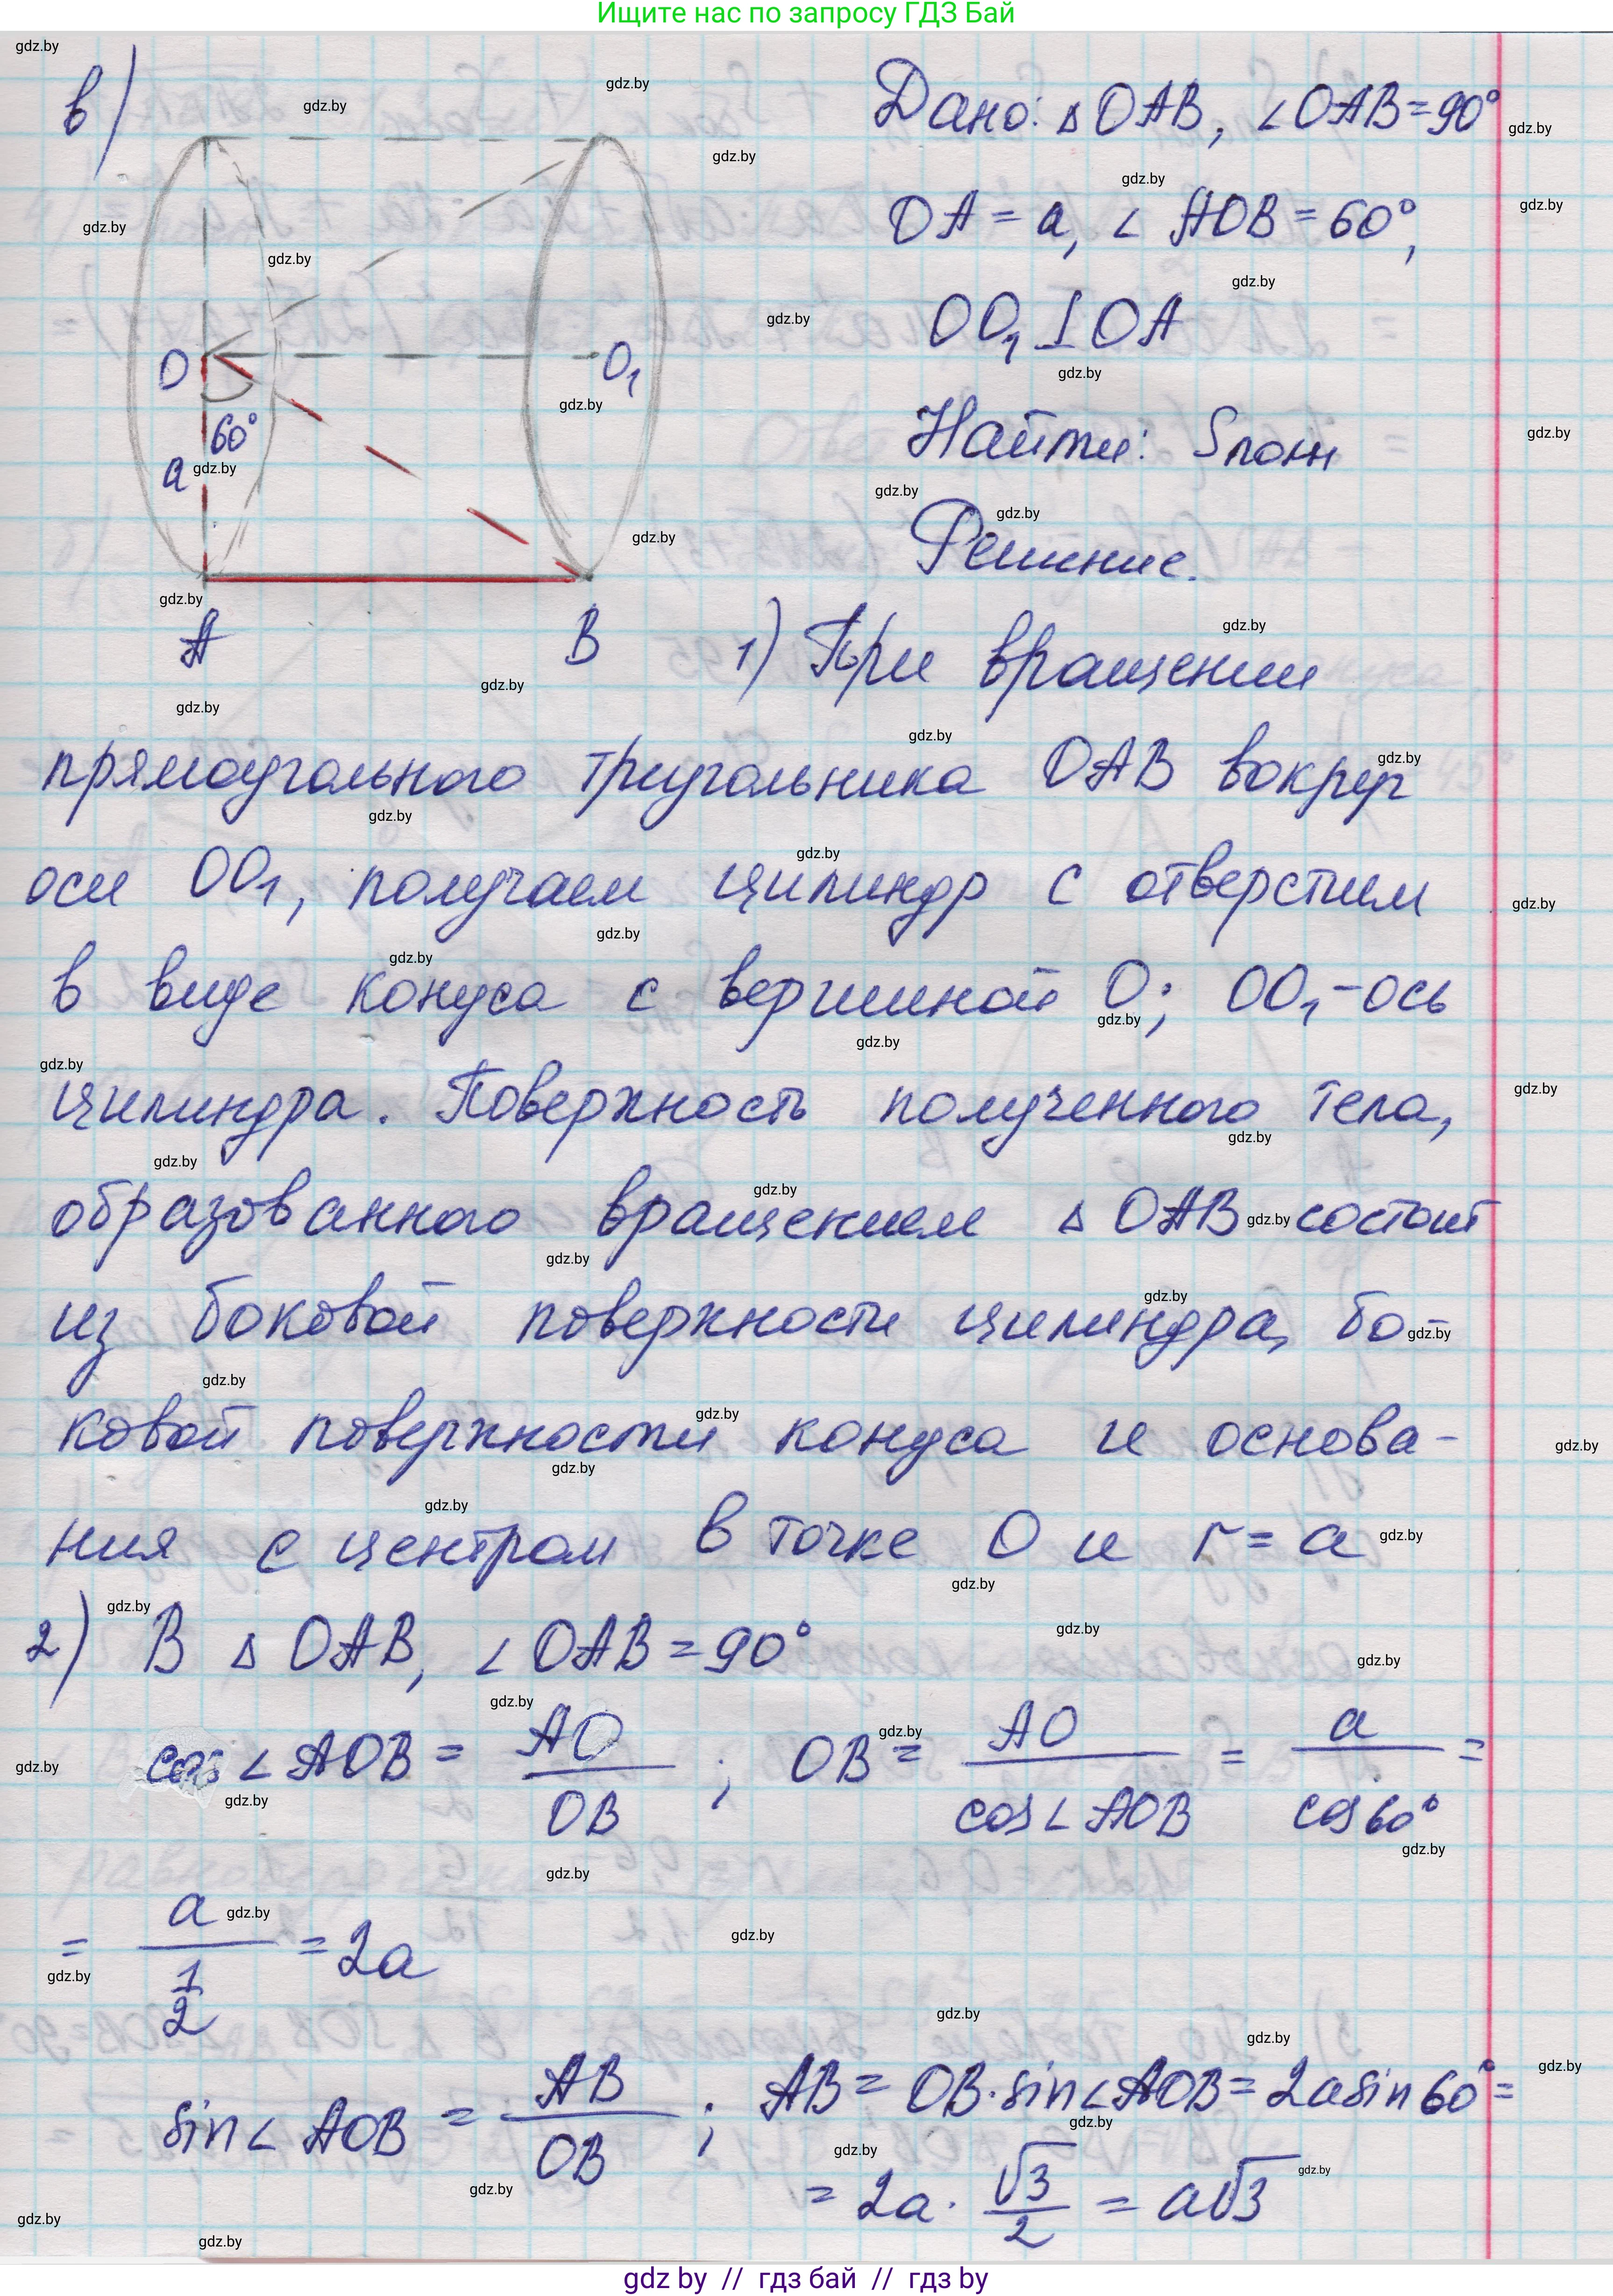 Ищите нас по запросу ГДЗ Бай
в)
Дано: △OAB, ∠OAB=90°
OA = a, ∠AOB = 60°,
OO₁ ⊥ OA
Найти: Sполн
Решение.
O
O₁
60°
a
A
B
1) При вращении
прямоугольного треугольника OAB вокруг
оси OO₁, получаем цилиндр с отверстием
в виде конуса с вершиной O; OO₁-ось
цилиндра. Поверхность полученного тела,
образованного вращением △OAB состоит
из боковой поверхности цилиндра, бо-
ковой поверхности конуса и основа-
ния с центром в точке O и r = a
2) В △OAB, ∠OAB = 90°
cos∠AOB = AO/OB ; OB = AO/cos∠AOB = a/cos60° =
= a/(1/2) = 2a
sin∠AOB = AB/OB ; AB = OB·sin∠AOB = 2asin60° =
= 2a · √3/2 = a√3
gdz by // гдз бай // гдз by